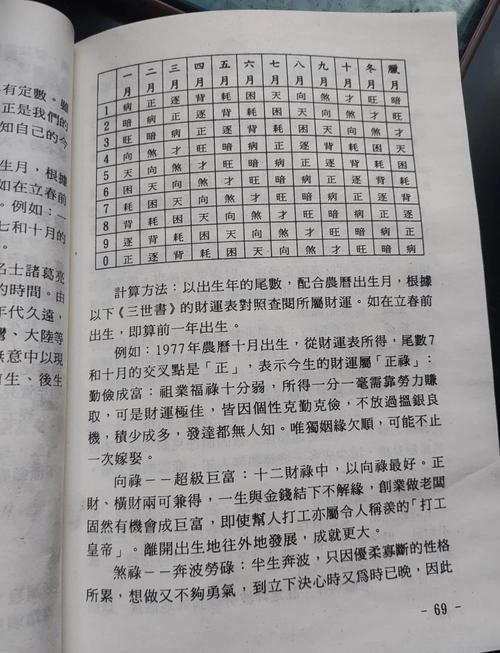 有定數。雖
正是我們的
知自己的今
出生月，根據
如在立春前
。例如：一
七和十月的
。
名士諸葛亮
的時間。由
年代久遠，
、大陸等
無意中以現
前生、後生
一月 二月 三月 四月 五月 六月 七月 八月 九月 十月 冬月 臘月
1 病 正 逐 背 耗 困 天 向 煞 才 旺 暗
2 暗 病 正 逐 背 耗 困 天 向 煞 才 旺
3 旺 暗 病 正 逐 背 耗 困 天 向 煞 才
4 向 煞 才 旺 暗 病 正 逐 背 耗 困 天
5 天 向 煞 才 旺 暗 病 正 逐 背 耗 困
6 困 天 向 煞 才 旺 暗 病 正 逐 背 耗
7 耗 困 天 向 煞 才 旺 暗 病 正 逐 背
8 背 耗 困 天 向 煞 才 旺 暗 病 正 逐
9 逐 背 耗 困 天 向 煞 才 旺 暗 病 正
0 正 逐 背 耗 困 天 向 煞 才 旺 暗 病
計算方法：以出生年的尾數，配合農曆出生月，根據
以下《三世書》的財運表對照查閱所屬財運。如在立春前
出生，即算前一年出生。
例如：1977年農曆十月出生，從財運表所得，尾數7
和十月的交叉點是「正」，表示今生的財運屬「正祿」：
勤儉成富：祖業福祿十分弱，所得一分一毫需靠勞力賺
取，可是財運極佳，皆因個性克勤克儉，不放過搵銀良
機，積少成多，發達都無人知。唯獨姻緣欠順，可能不止
一次嫁娶。
向祿－－超級巨富：十二財祿中，以向祿最好。正
財、橫財兩可兼得，一生與金錢結下不解緣，創業做老闆
固然有機會成巨富，即使幫人打工亦屬令人稱羨的「打工
皇帝」。離開出生地往外地發展，成就更大。
煞祿－－奔波勞碌：半生奔波，只因優柔寡斷的性格
所累，想做又不夠勇氣，到立下決心時又爲時已晚，因此
- 69 -